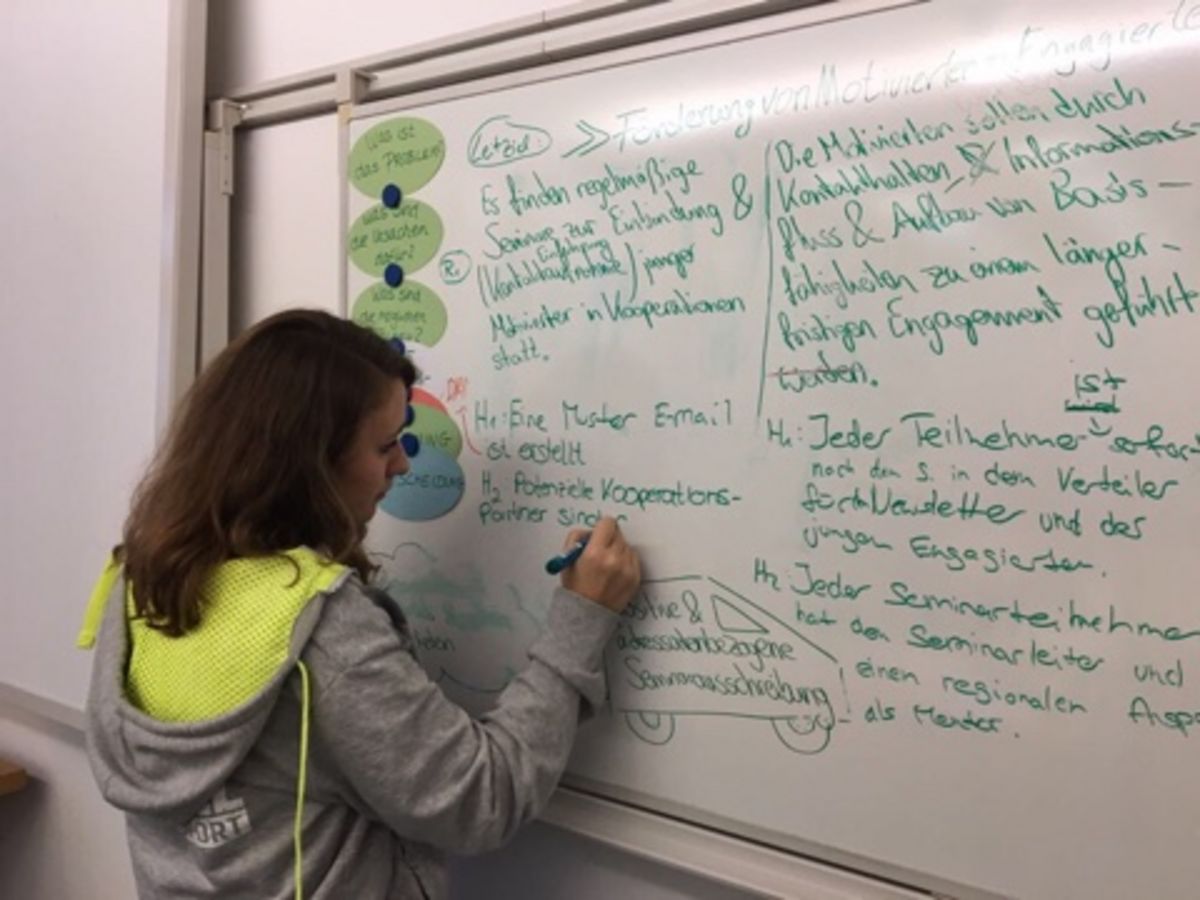 Was ist
das PROBLEM?
was sind
die Ursachen
dafür?
was sind
die möglichen
DRK
UNG
SCHEIDUNG
Letziel:
>> Förderung von Motivierten
Engagierte
Es finden regelmäßige
Seminare zur Einbindung &
R1
Einführung
(Kontaktaufnahme) junger
Motivierter in Kooperationen
statt.
H1: Eine Muster E-mail
ist erstellt
H2 Potenzielle Kooperations-
partner sind
Positive &
adressatenbezogene
Seminarausschreibung
Die Motivierten sollen durch
Kontakthalten, Informations-
fluss & Aufbau von Basis-
fähigkeiten zu einem länger-
fristigen Engagement geführt
werden.
ist
H1: Jeder Teilnehmer sofor
nach dem S. in dem Verteiler
für Newsletter und der
jungen Engagierten.
H2: Jeder Seminarteilnehmer
hat den Seminarleiter und
einen regionalen Ansp
als Mentor.
ORT